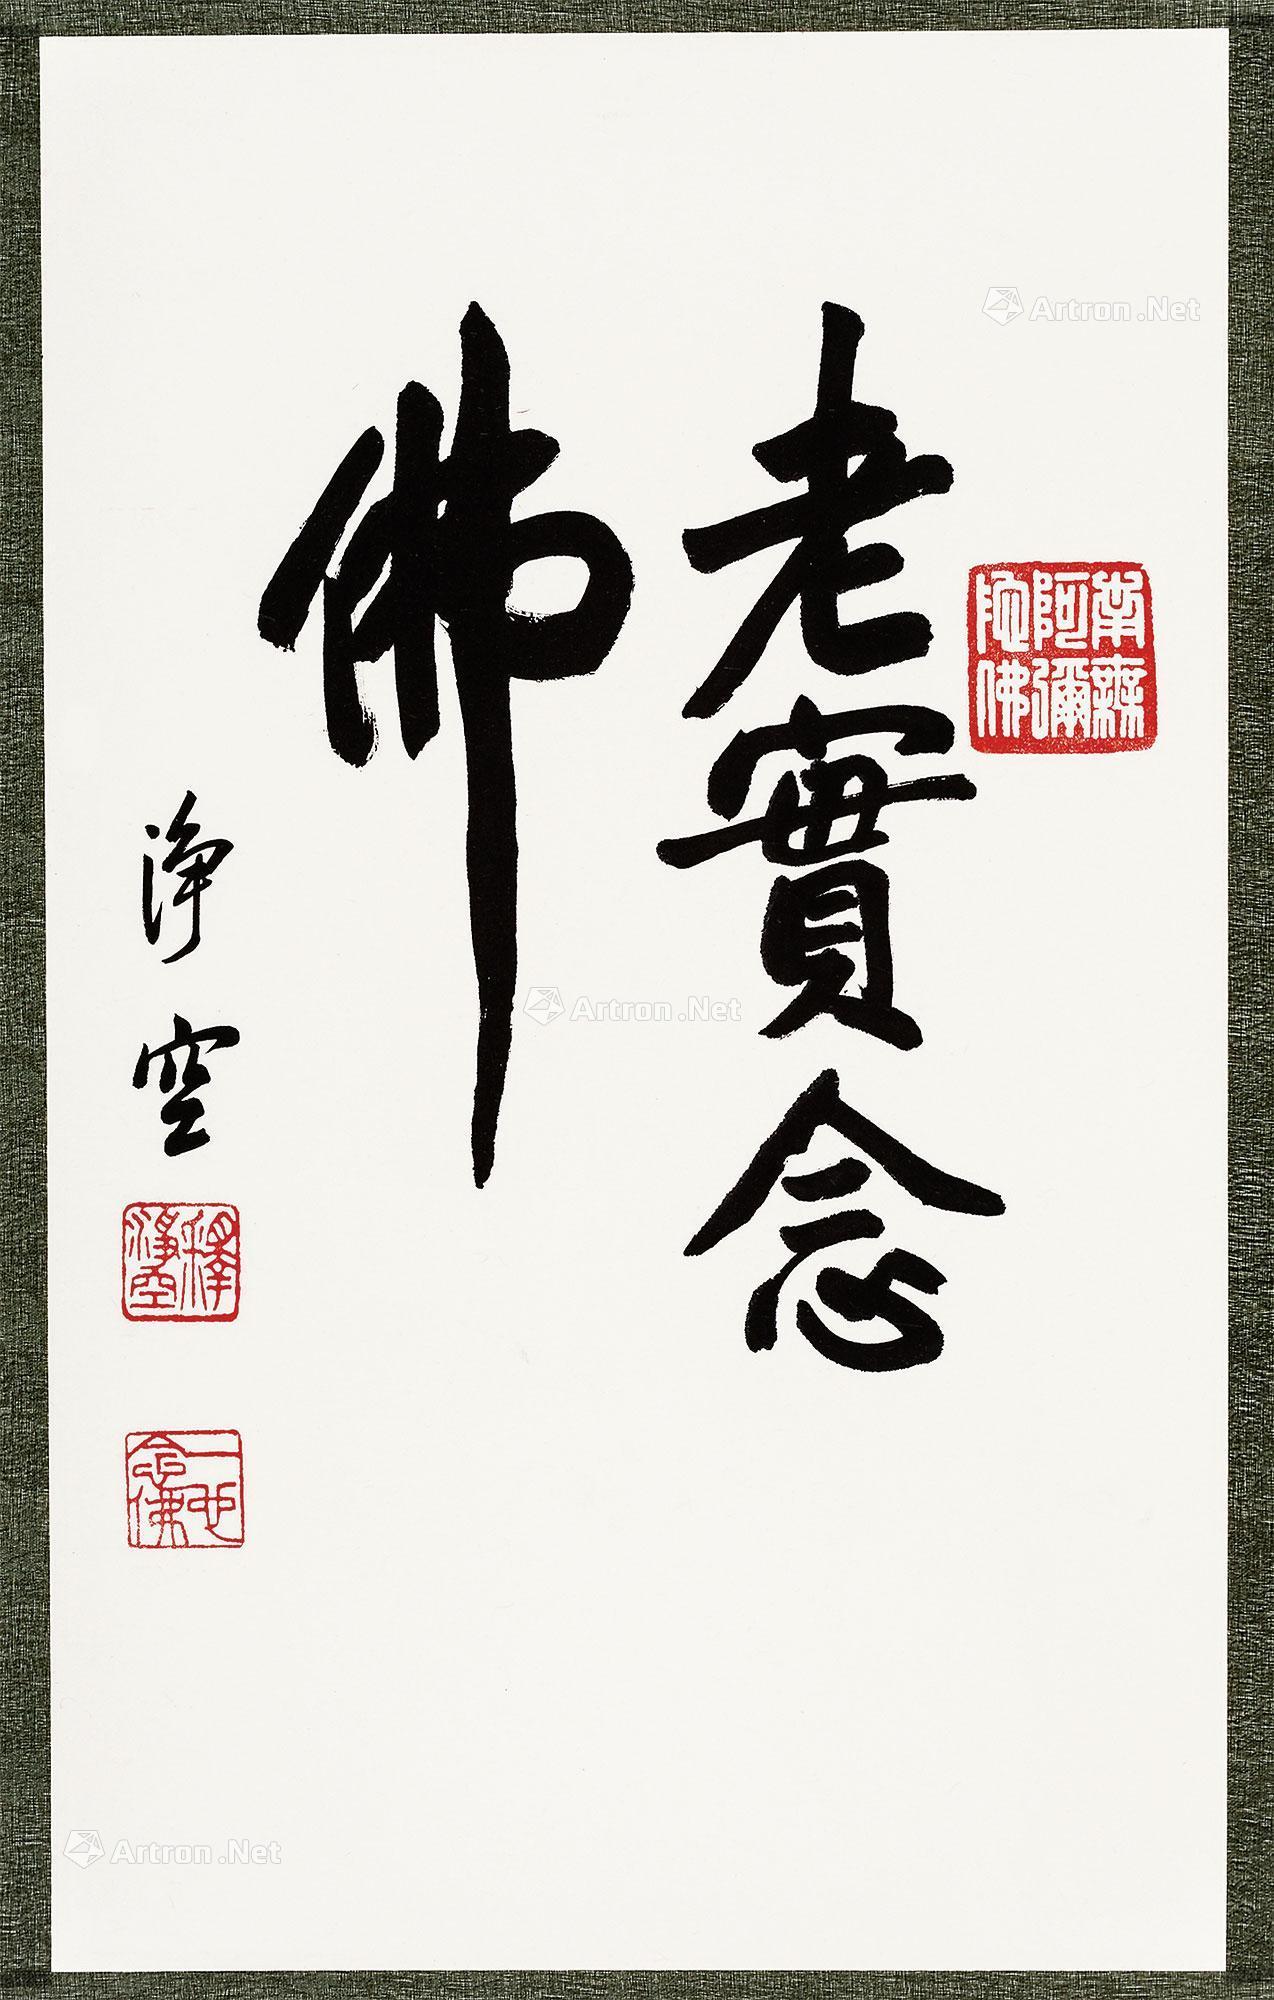 老實念
佛
淨空
南無
阿彌
陀佛
釋
淨空
一心
念佛
Artron.Net
Artron.Net
Artron.Net